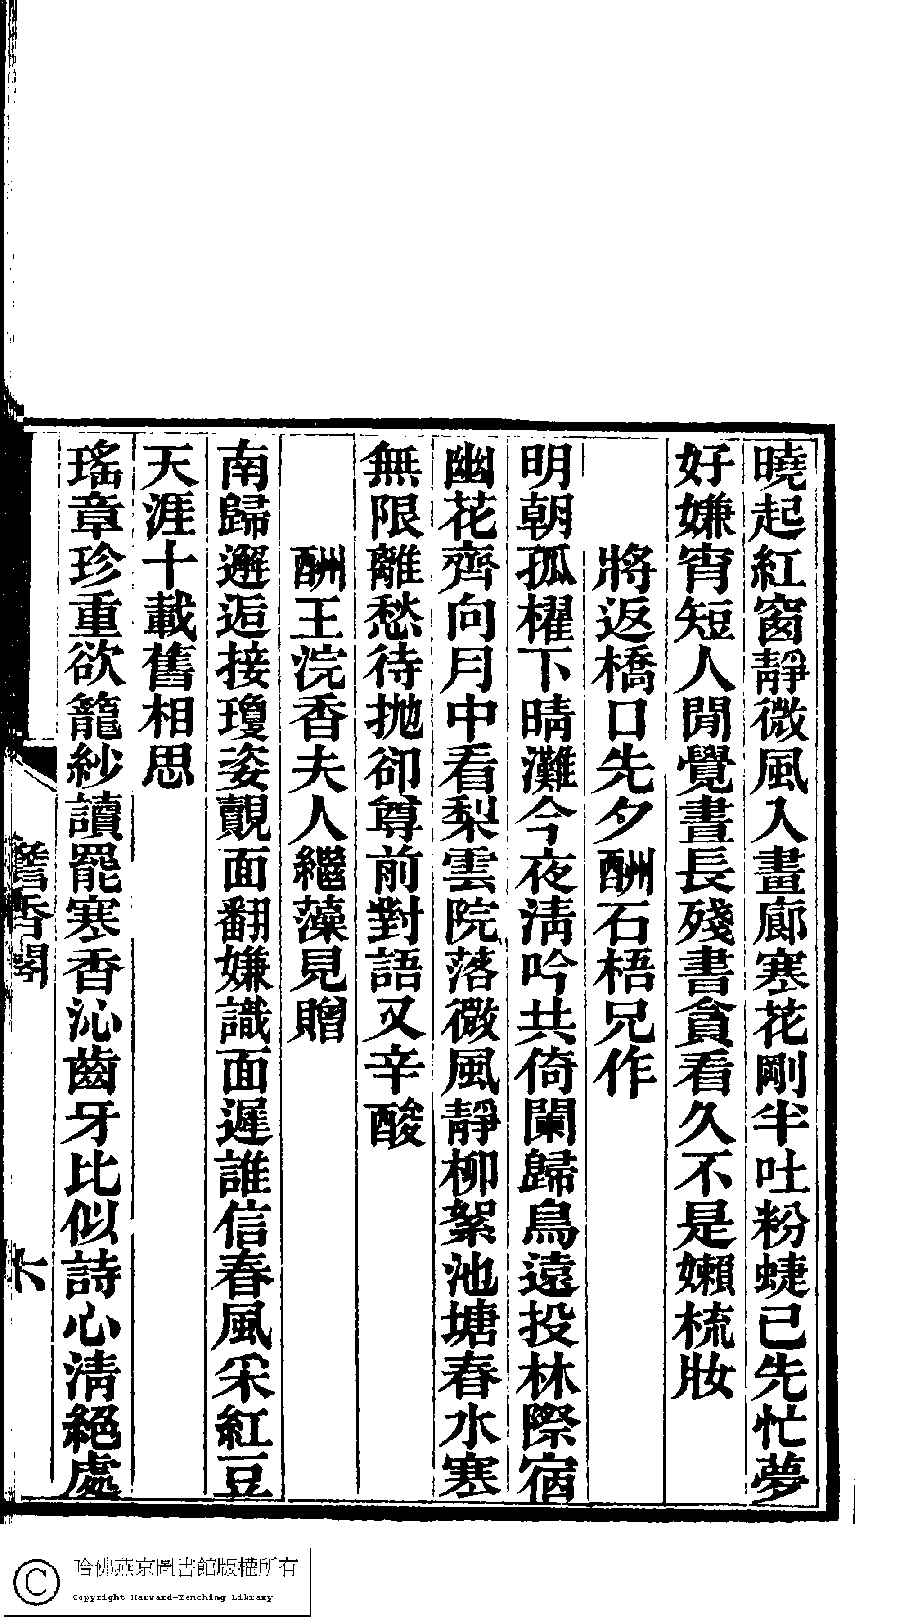 曉起紅窗靜微風入畫廊寒花剛半吐粉蜨已先忙夢
好嫌宵短人閒覺晝長殘書貪看久不是嬾梳妝
將返橋口先夕酬石梧兄作
明朝孤櫂下晴灘今夜淸吟共倚闌歸鳥遠投林際宿
幽花齊向月中看梨雲院落微風靜柳絮池塘春水寒
無限離愁待拋卻尊前對語又辛酸
酬王浣香夫人繼藻見贈
南歸邂逅接瓊姿覿面翻嫌識面遲誰信春風采紅豆
天涯十載舊相思
瑤章珍重欲籠紗讀罷寒香沁齒牙比似詩心淸絕處
香閣
六
哈佛燕京圖書館版權所有
Copyright Harvard-Yenching Library